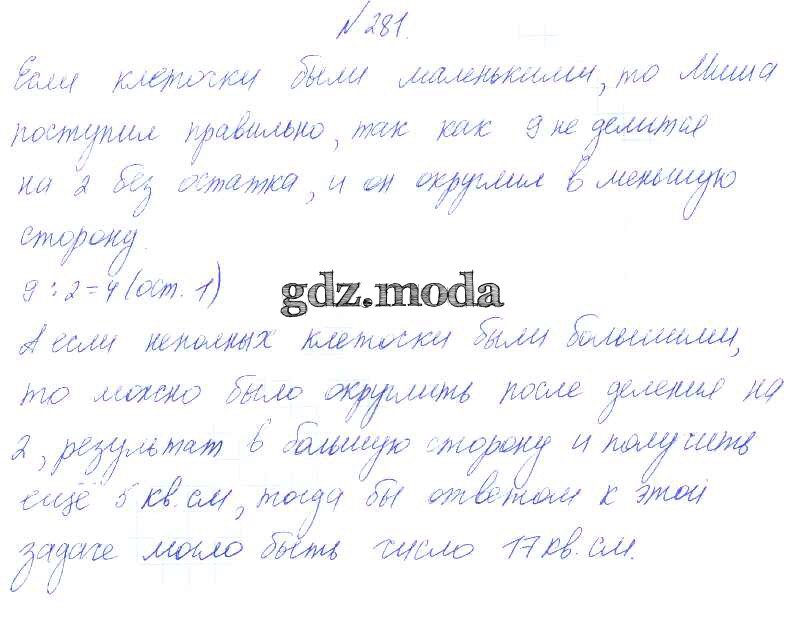 № 281.
Если клеточки были маленькими, то Миша
поступил правильно, так как 9 не делится
на 2 без остатка, и он округлил в меньшую
сторону.
9 : 2 = 4 (ост. 1)
gdz.moda
А если неполных клеточки были большими,
то можно было округлить после деления на
2, результат в большую сторону и получить
ещё 5 кв. см, тогда бы ответом к этой
задаче могло быть число 17 кв. см.